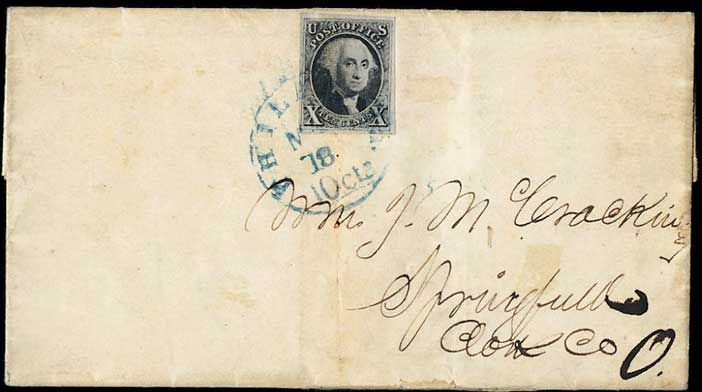 U S
POST OFFICE
X TEN CENTS X
PHIL
18
10 cts
Wm. J. M. Crackin
Springfield
Co O.